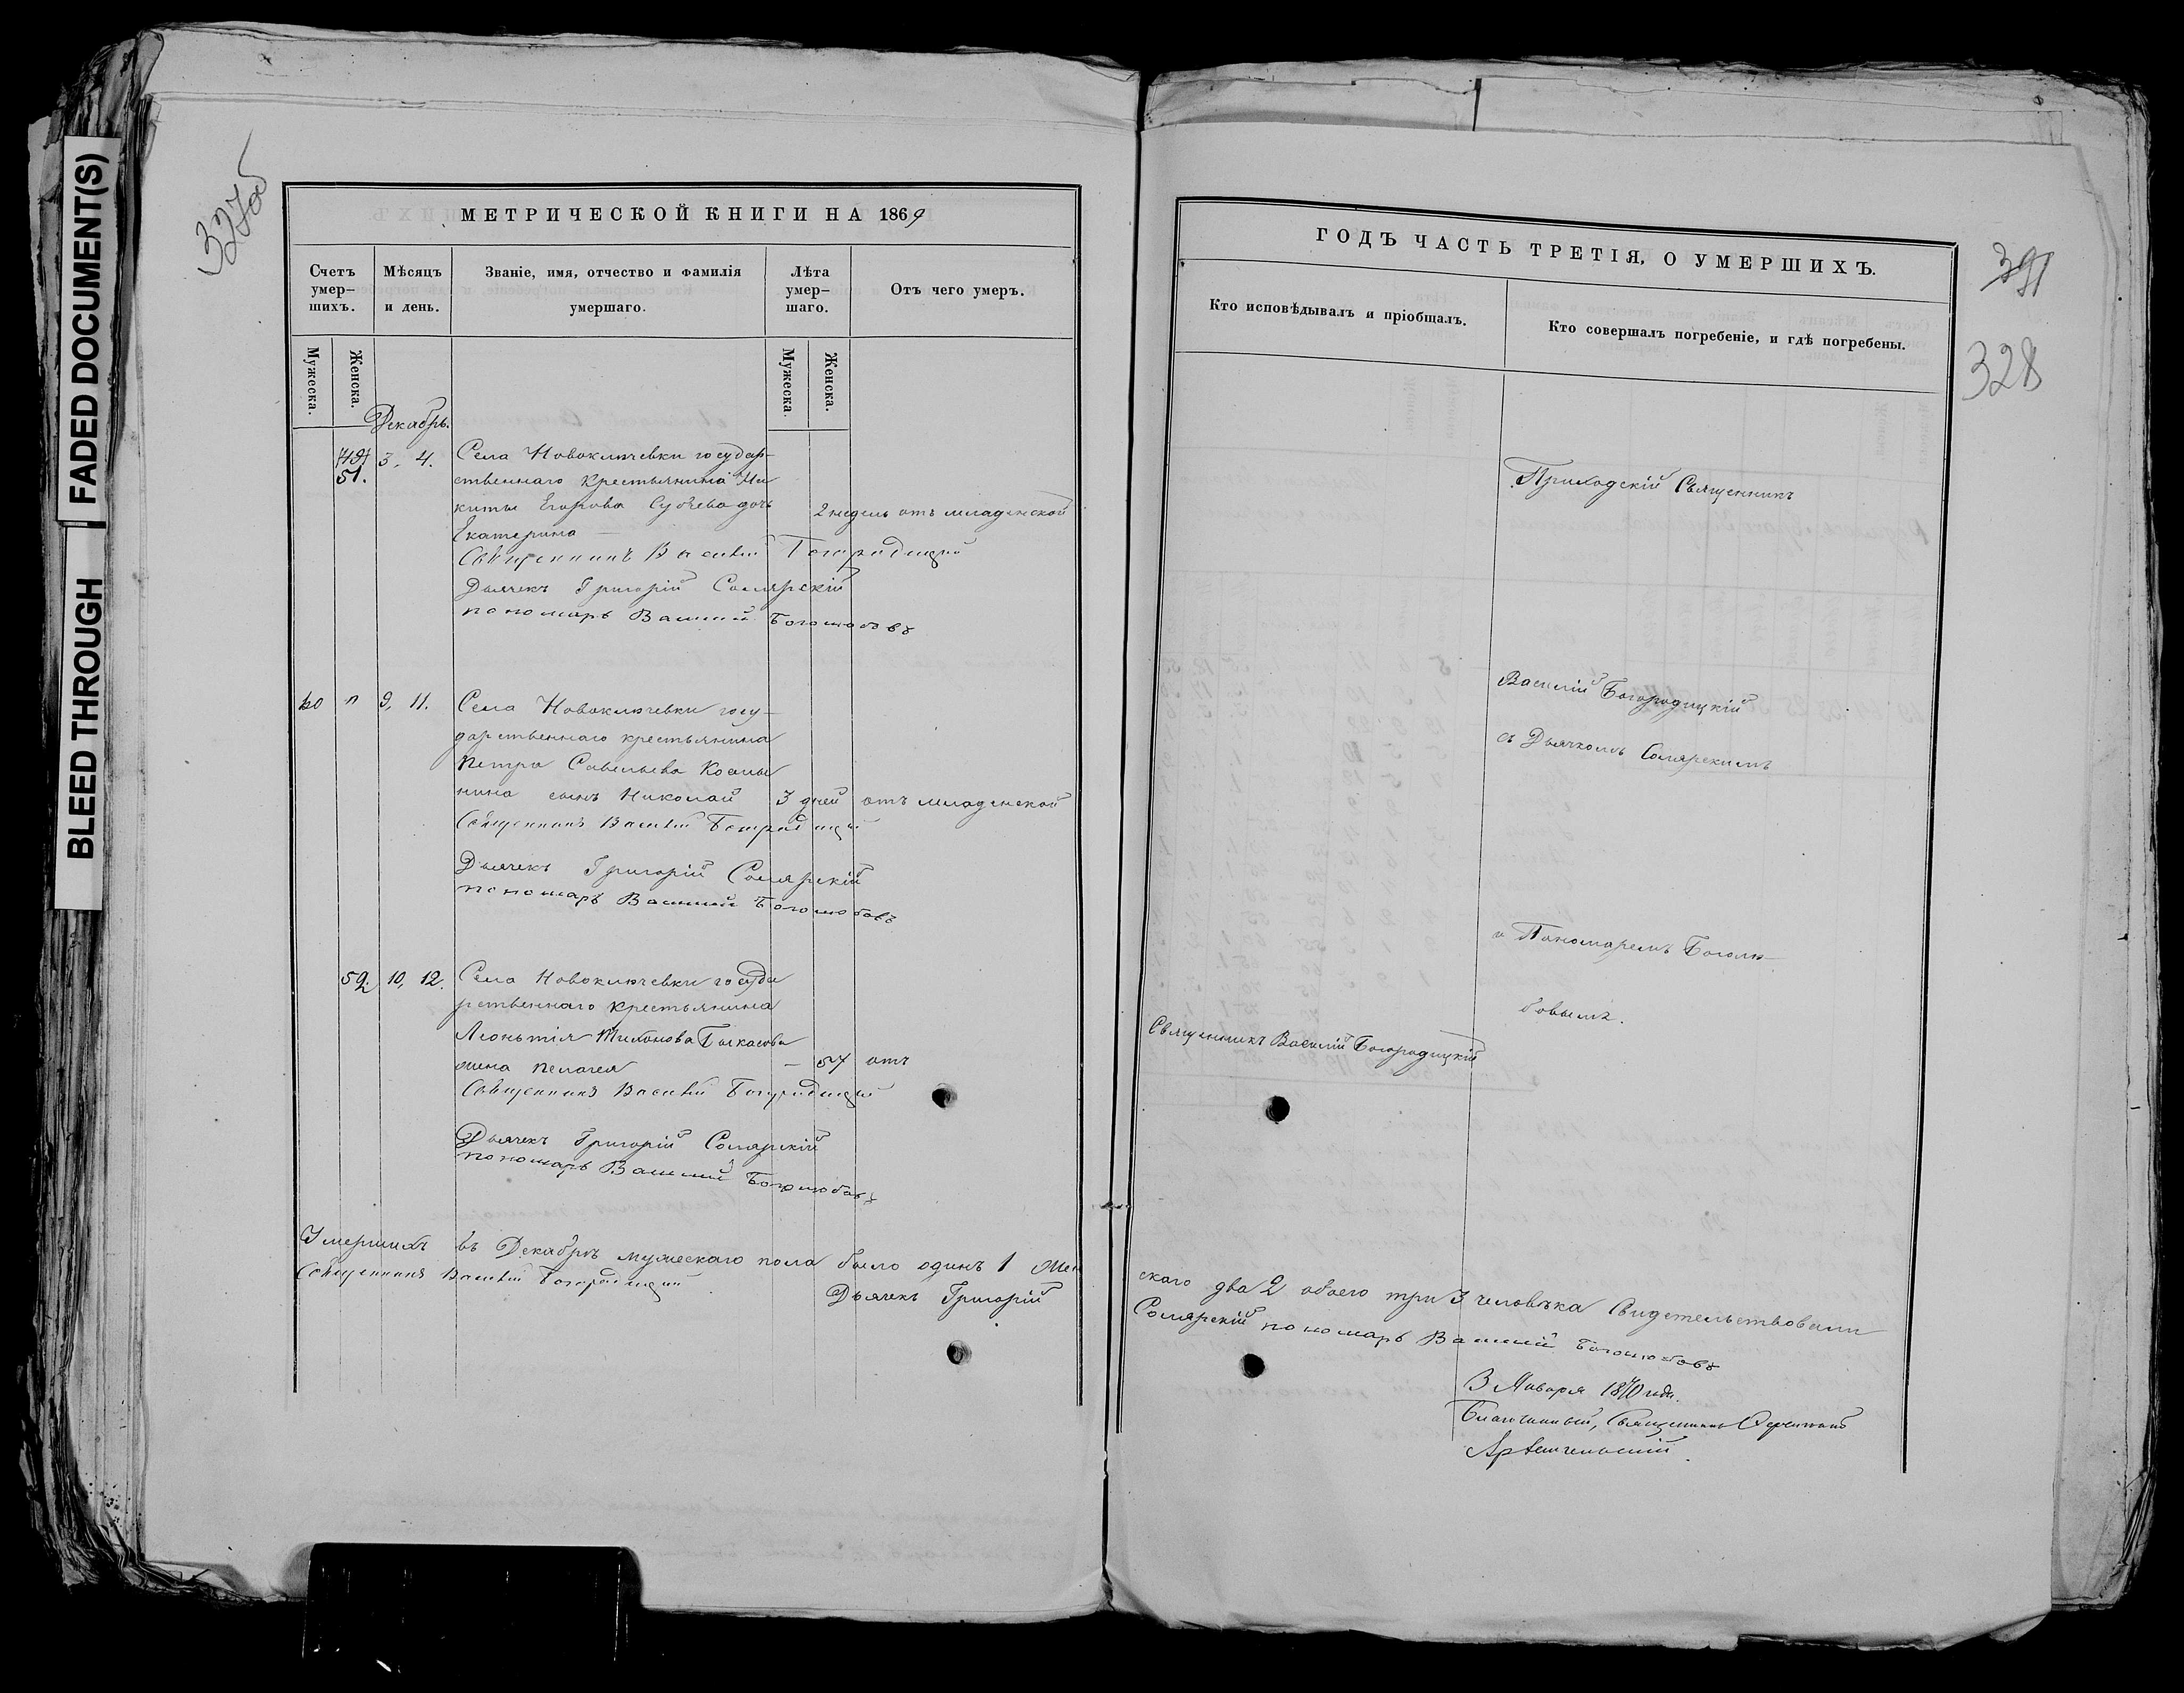 FADED DOCUMENT(S)
BLEED THROUGH
327об
МЕТРИЧЕСКОЙ КНИГИ НА 1869
Счетъ умер-шихъ.
Мѣсяцъ и день.
Званіе, имя, отчество и фамилія умершаго.
Лѣта умер-шаго.
Отъ чего умеръ.
Мужеска.
Женска.
Мужеска.
Женска.
Декабрь.
51. 3, 4. Села Новоключевки государ-
ственнаго крестьянина Ни
киты Егорова дочь 2 недель отъ младенской
Екатерина
Священникъ Василій Богородицкій
Дьячекъ Григорій Солярскій
пономарь Василій Боголюбовъ
" 9, 11. Села Новоключевки госу-
дарственнаго крестьянина
Петра Савельева
нина сынъ Николай 3 дней отъ младенской
Священникъ Василій Богородицкій
Дьячекъ Григорій Солярскій
пономарь Василій Боголюбовъ
52. 10, 12. Села Новоключевки госуда
рственнаго крестьянина
Леонтія
жена Пелагея - 57 отъ
Священникъ Василій Богородицкій
Дьячекъ Григорій Солярскій
пономарь Василій Боголюбовъ
Умершихъ въ Декабрѣ мужескаго пола было одинъ 1 жен
Священникъ Василій Богородицкій
Дьячекъ Григорій
ГОДЪ ЧАСТЬ ТРЕТІЯ, О УМЕРШИХЪ.
391
328
Кто исповѣдывалъ и пріобщалъ.
Кто совершалъ погребеніе, и гдѣ погребены.
Приходскій Священникъ
Василій Богородицкій
съ Дьячкомъ Солярскимъ
и Пономаремъ Боголю-
бовымъ.
Священникъ Василій Богородицкій
скаго два 2 обоего три 3 человѣка Свидетельствовали
Солярскій пономарь Василій Боголюбовъ
3 Января 1870 года.
Благочинный, Священникъ
Архангельскій.